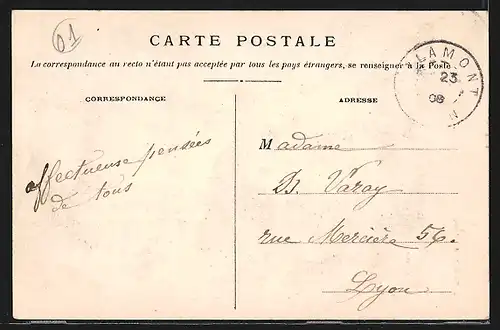 01
CARTE POSTALE
La correspondance au recto n'étant pas acceptée par tous les pays étrangers, se renseigner à la Poste
LAMONT
23
08
CORRESPONDANCE
ADRESSE
affectueuse pensées
de tous
Madame
D. Varay
rue Mercière 56.
Lyon